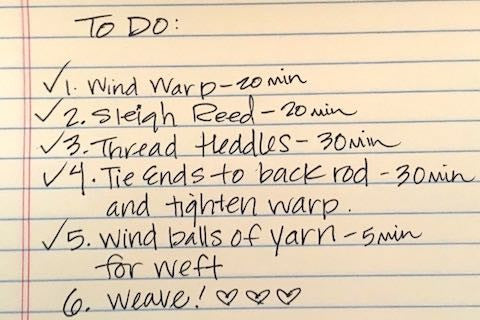 TO DO:
✓1. Wind Warp - 20 min
✓2. Sleigh Reed - 20 min
✓3. Thread Heddles - 30 min
✓4. Tie Ends to back rod - 30 min
and tighten warp.
✓5. Wind balls of yarn - 5 min
for weft
6. Weave! ♡♡♡